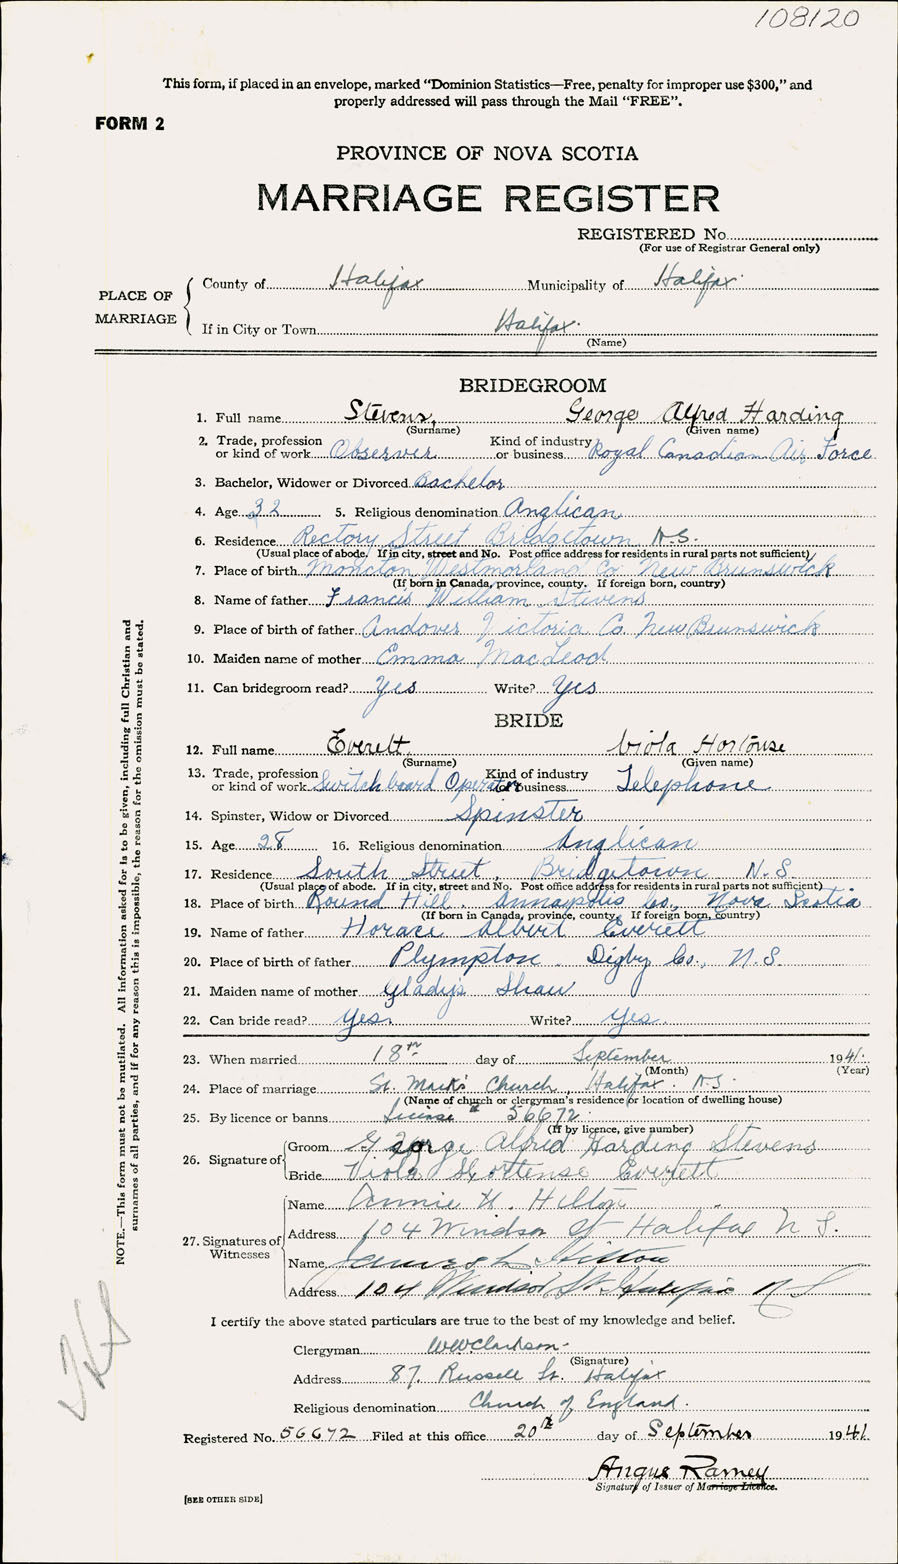 108120
This form, if placed in an envelope, marked “Dominion Statistics—Free, penalty for improper use $300,” and
properly addressed will pass through the Mail “FREE”.
FORM 2
PROVINCE OF NOVA SCOTIA
MARRIAGE REGISTER
REGISTERED No.
(For use of Registrar General only)
PLACE OF MARRIAGE
County of Halifax Municipality of Halifax.
If in City or Town Halifax.
(Name)
BRIDEGROOM
1. Full name Stevens, George Alfred Harding
(Surname) (Given name)
2. Trade, profession or kind of work Observer Kind of industry or business Royal Canadian Air Force
3. Bachelor, Widower or Divorced Bachelor
4. Age 32 5. Religious denomination Anglican
6. Residence Rectory Street Bridgetown N.S.
(Usual place of abode. If in city, street and No. Post office address for residents in rural parts not sufficient)
7. Place of birth Moncton Westmorland Co New Brunswick
(If born in Canada, province, county. If foreign born, country)
8. Name of father Francis William Stevens
9. Place of birth of father Andover Victoria Co. New Brunswick
10. Maiden name of mother Emma MacLeod
11. Can bridegroom read? Yes Write? Yes
BRIDE
12. Full name Everett Viola Hortense
(Surname) (Given name)
13. Trade, profession or kind of work Switchboard Operator Kind of industry or business Telephone
14. Spinster, Widow or Divorced Spinster
15. Age 28 16. Religious denomination Anglican
17. Residence South Street, Bridgetown N.S.
(Usual place of abode. If in city, street and No. Post office address for residents in rural parts not sufficient)
18. Place of birth Round Hill, Annapolis Co., Nova Scotia
(If born in Canada, province, county. If foreign born, country)
19. Name of father Horace Albert Everett
20. Place of birth of father Plympton Digby Co., N.S.
21. Maiden name of mother Gladys Shaw
22. Can bride read? Yes. Write? Yes.
23. When married 18th day of September 1941.
(Month) (Year)
24. Place of marriage St. Mark's Church, Halifax. N.S.
(Name of church or clergyman's residence or location of dwelling house)
25. By licence or banns License # 56672.
(If by licence, give number)
26. Signature of Groom George Alfred Harding Stevens
Bride Viola Hortense Everett
27. Signatures of Witnesses
Name Annie H. Hilton
Address 104 Windsor St Halifax N.S.
Name James L Hilton
Address 104 Windsor St Halifax N S
I certify the above stated particulars are true to the best of my knowledge and belief.
Clergyman WW Clarkson.
(Signature)
Address 87. Russell St. Halifax
Religious denomination Church of England.
Registered No. 56672 Filed at this office 20th day of September 1941.
Angus Ramey
Signature of Issuer of Marriage Licence.
[SEE OTHER SIDE]
NOTE.—This form must not be mutilated. All information asked for is to be given, including full Christian and
surnames of all parties, and if for any reason this is impossible, the reason for the omission must be stated.